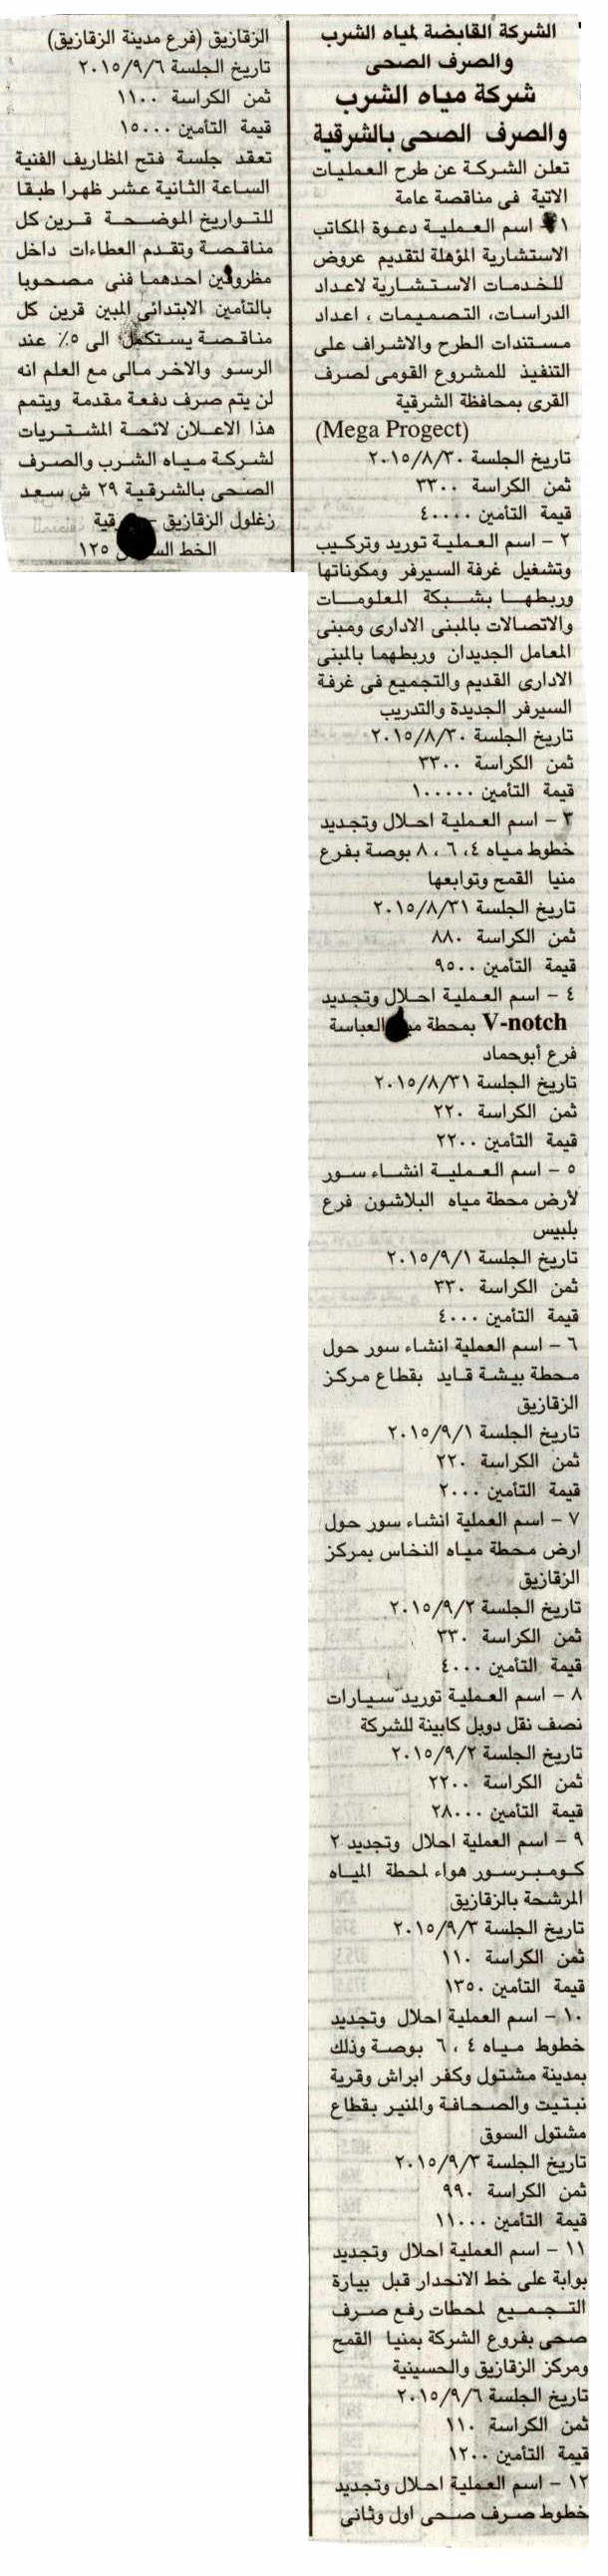 الشركة القابضة لمياه الشرب
والصرف الصحى
شركة مياه الشرب
والصرف الصحى بالشرقية
تعلن الشركة عن طرح العمليات
الاتية فى مناقصة عامة
١ - اسم العملية دعوة المكاتب
الاستشارية المؤهلة لتقديم عروض
للخدمات الاستشارية لاعداد
الدراسات، التصميمات ، اعداد
مستندات الطرح والاشراف على
التنفيذ للمشروع القومى لصرف
القرى بمحافظة الشرقية
(Mega Progect)
تاريخ الجلسة ٢٠١٥/٨/٣٠
ثمن الكراسة ٣٣٠٠
قيمة التأمين ٤٠٠٠٠
٢ - اسم العملية توريد وتركيب
وتشغيل غرفة السيرفر ومكوناتها
وربطها بشبكة المعلومات
والاتصالات بالمبنى الادارى ومبنى
المعامل الجديدان وربطهما بالمبنى
الادارى القديم والتجميع فى غرفة
السيرفر الجديدة والتدريب
تاريخ الجلسة ٢٠١٥/٨/٣٠
ثمن الكراسة ٣٣٠٠
قيمة التأمين ١٠٠٠٠٠
٣ - اسم العملية احلال وتجديد
خطوط مياه ٤، ٦ ، ٨ بوصة بفرع
منيا القمح وتوابعها
تاريخ الجلسة ٢٠١٥/٨/٣١
ثمن الكراسة ٨٨٠
قيمة التأمين ٩٥٠٠
٤ - اسم العملية احلال وتجديد
V-notch بمحطة العباسة
فرع أبوحماد
تاريخ الجلسة ٢٠١٥/٨/٣١
ثمن الكراسة ٢٢٠
قيمة التأمين ٢٢٠٠
٥ - اسم العملية انشاء سور
لأرض محطة مياه البلاشون فرع
بلبيس
تاريخ الجلسة ٢٠١٥/٩/١
ثمن الكراسة ٣٣٠
قيمة التأمين ٤٠٠٠
٦ - اسم العملية انشاء سور حول
محطة بيشة قايد بقطاع مركز
الزقازيق
تاريخ الجلسة ٢٠١٥/٩/١
ثمن الكراسة ٢٢٠
قيمة التأمين ٢٠٠٠
٧ - اسم العملية انشاء سور حول
ارض محطة مياه النخاس بمركز
الزقازيق
تاريخ الجلسة ٢٠١٥/٩/٢
ثمن الكراسة ٣٣٠
قيمة التأمين ٤٠٠٠
٨ - اسم العملية توريد سيارات
نصف نقل دوبل كابينة للشركة
تاريخ الجلسة ٢٠١٥/٩/٢
ثمن الكراسة ٢٢٠٠
قيمة التأمين ٢٨٠٠٠
٩ - اسم العملية احلال وتجديد ٢
كومبرسور هواء لمحطة المياه
المرشحة بالزقازيق
تاريخ الجلسة ٢٠١٥/٩/٣
ثمن الكراسة ١١٠
قيمة التأمين ١٣٥٠
١٠ - اسم العملية احلال وتجديد
خطوط مياه ٤ ، ٦ بوصة وذلك
بمدينة مشتول وكفر ابراش وقرية
نبتيت والصحافة والمنير بقطاع
مشتول السوق
تاريخ الجلسة ٢٠١٥/٩/٣
ثمن الكراسة ٩٩٠
قيمة التأمين ١١٠٠٠
١١ - اسم العملية احلال وتجديد
بوابة على خط الانحدار قبل بيارة
التجميع لمحطات رفع صرف
صحى بفروع الشركة بمنيا القمح
ومركز الزقازيق والحسينية
تاريخ الجلسة ٢٠١٥/٩/٦
ثمن الكراسة ١١٠
قيمة التأمين ١٢٠٠
١٢ - اسم العملية احلال وتجديد
خطوط صرف صحى اول وثانى
الزقازيق (فرع مدينة الزقازيق)
تاريخ الجلسة ٢٠١٥/٩/٦
ثمن الكراسة ١١٠٠
قيمة التأمين ١٥٠٠٠
تعقد جلسة فتح المظاريف الفنية
الساعة الثانية عشر ظهرا طبقا
للتواريخ الموضحة قرين كل
مناقصة وتقدم العطاءات داخل
مظروفين احدهما فنى مصحوبا
بالتأمين الابتدائى المبين قرين كل
مناقصة يستكمل الى ٥٪ عند
الرسو والاخر مالى مع العلم انه
لن يتم صرف دفعة مقدمة ويتمم
هذا الاعلان لائحة المشتريات
لشركة مياه الشرب والصرف
الصحى بالشرقية ٢٩ ش سعد
زغلول الزقازيق -
الخط ١٢٥